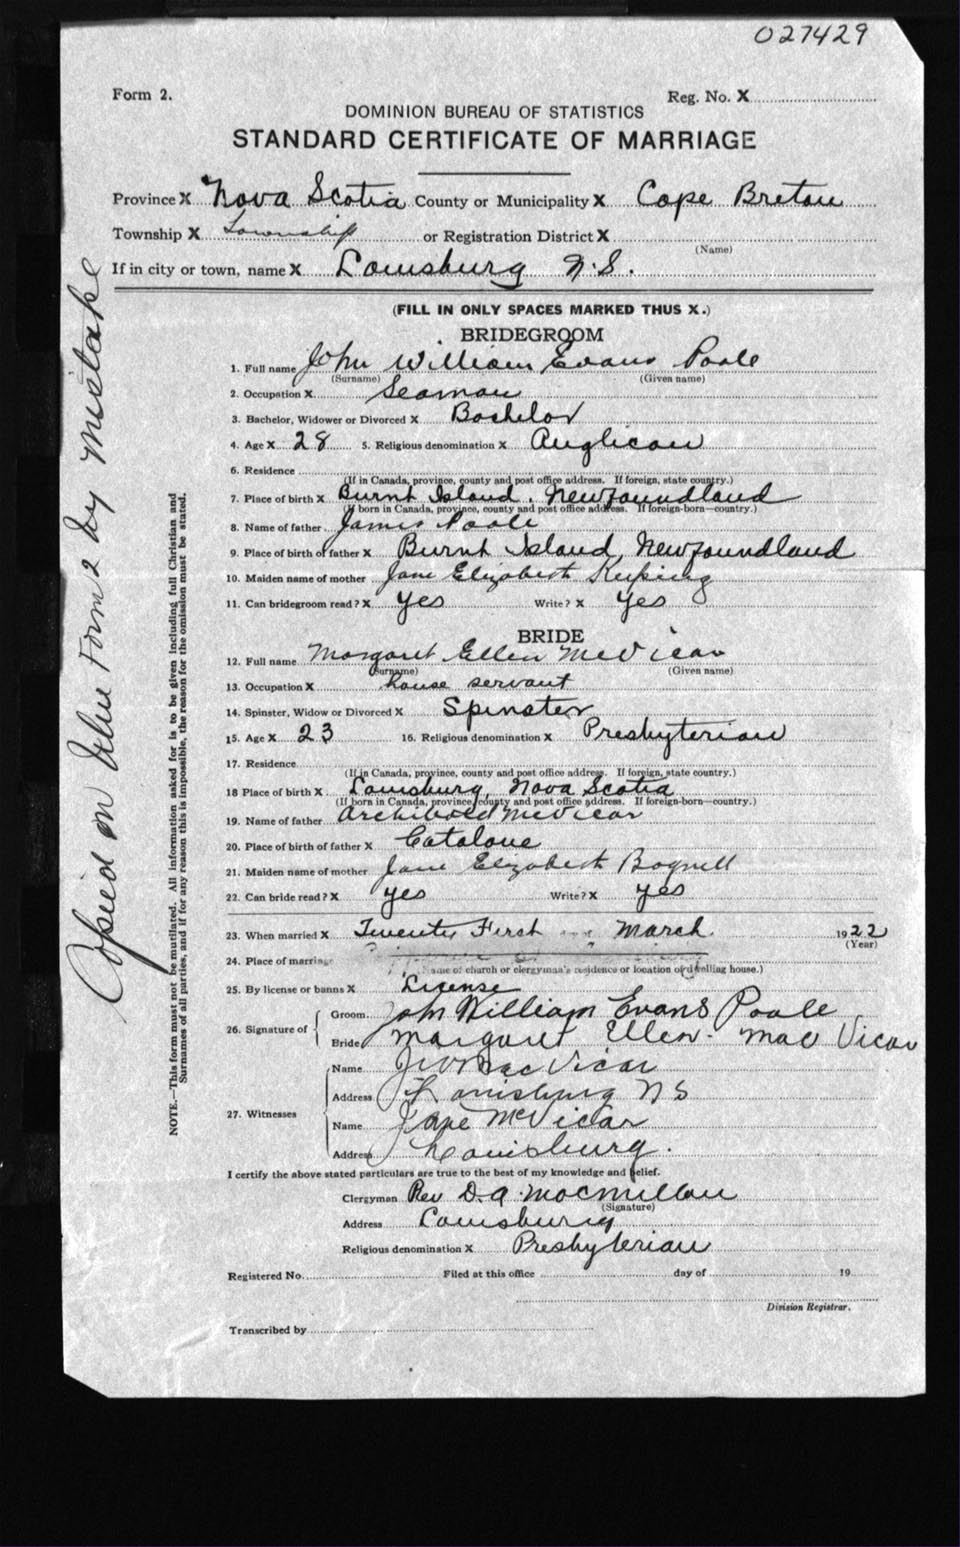 027429
Form 2.
Reg. No. X
DOMINION BUREAU OF STATISTICS
STANDARD CERTIFICATE OF MARRIAGE
Province X Nova Scotia County or Municipality X Cape Breton
Township X Township or Registration District X
(Name)
If in city or town, name X Louisburg N.S.
(FILL IN ONLY SPACES MARKED THUS X.)
BRIDEGROOM
1. Full name John William Evans Poole
(Surname) (Given name)
2. Occupation X Seaman
3. Bachelor, Widower or Divorced X Bachelor
4. Age X 28 5. Religious denomination X Anglican
6. Residence
(If in Canada, province, county and post office address. If foreign, state country.)
7. Place of birth X Burnt Island, Newfoundland
(If born in Canada, province, county and post office address. If foreign-born—country.)
8. Name of father James Poole
9. Place of birth of father X Burnt Island, Newfoundland
10. Maiden name of mother Jane Elizabeth Keeping
11. Can bridegroom read? X yes Write? X yes
BRIDE
12. Full name Margaret Ellen McVicar
(Surname) (Given name)
13. Occupation X house servant
14. Spinster, Widow or Divorced X Spinster
15. Age X 23 16. Religious denomination X Presbyterian
17. Residence
(If in Canada, province, county and post office address. If foreign, state country.)
18 Place of birth X Louisburg, Nova Scotia
(If born in Canada, province, county and post office address. If foreign-born—country.)
19. Name of father Archibald McVicar
20. Place of birth of father X Catalone
21. Maiden name of mother Jane Elizabeth Bagnell
22. Can bride read? X yes Write? X yes
23. When married X Twenty First March 1922
(Year)
24. Place of marriage
(Name of church or clergyman's residence or location of dwelling house.)
25. By license or banns X License
26. Signature of
Groom John William Evans Poole
Bride Margaret Ellen Mac Vicar
27. Witnesses
Name MacVicar
Address Louisburg N S
Name Jane McVicar
Address Louisburg.
I certify the above stated particulars are true to the best of my knowledge and belief.
Clergyman Rev D. A. MacMillan
(Signature)
Address Louisburg
Religious denomination X Presbyterian
Registered No. Filed at this office day of 19
Division Registrar.
Transcribed by
Copied on blue Form 2 by mistake
NOTE.—This form must not be mutilated. All information asked for is to be given including full Christian and
Surnames of all parties, and if for any reason this is impossible, the reason for the omission must be stated.